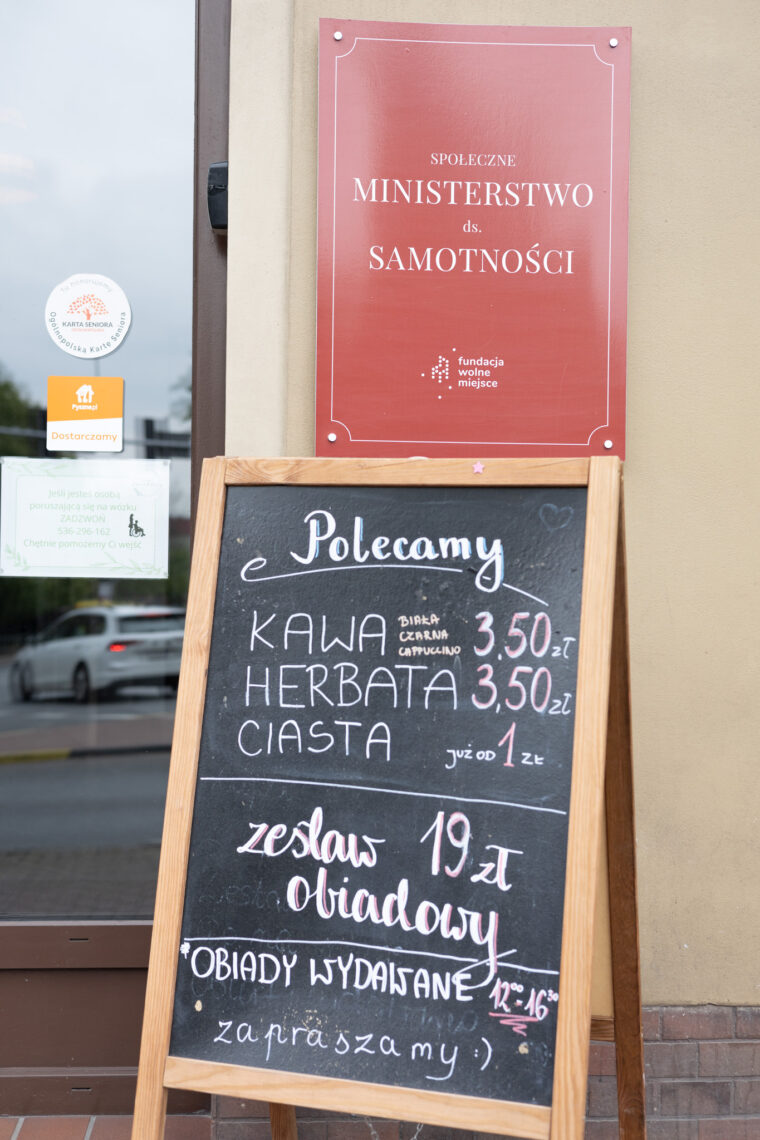 SPOŁECZNE
MINISTERSTWO
ds.
SAMOTNOŚCI
fundacja
wolne
miejsce
Tu honorujemy
KARTA SENIORA
Ogólnopolską Kartę Seniora
Pyszne.pl
Dostarczamy
Jeśli jesteś osobą
poruszającą się na wózku
ZADZWOŃ
536-296-162
Chętnie pomożemy Ci wejść
Polecamy
KAWA BIAŁA CZARNA CAPPUCCINO 3,50 zł
HERBATA 3,50 zł
CIASTA już od 1 zł
zestaw 19 zł
obiadowy
*OBIADY WYDAWANE 12⁰⁰-16³⁰
zapraszamy :)